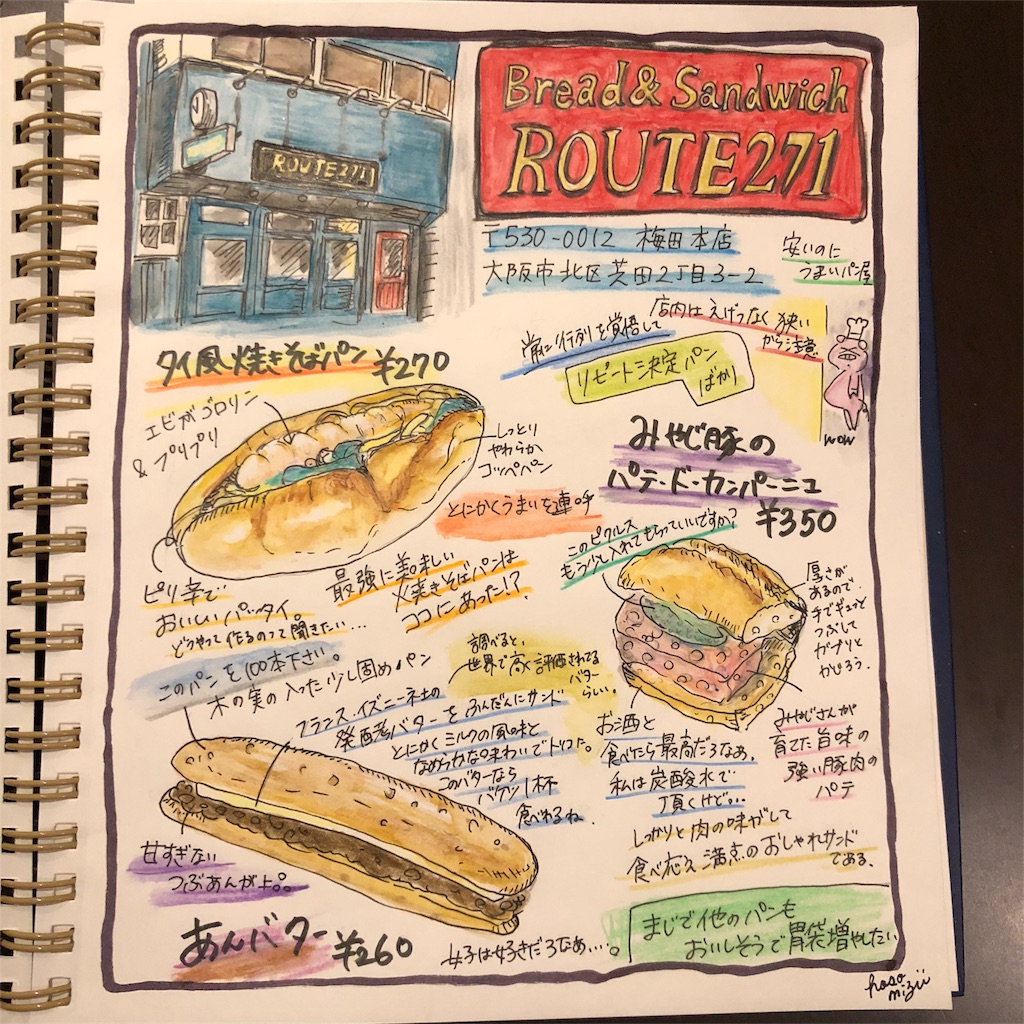 ROUTE271
Bread & Sandwich
ROUTE271
〒530-0012 梅田本店
大阪市北区芝田2丁目3-2
安いのに
うまいパン屋
店内はえげつなく狭い
から注意
常に行列を覚悟して
リピート決定パン
ばかり
wow
タイ風焼きそばパン ¥270
エビがゴロリン
&プリプリ
しっとり
やわらか
コッペパン
とにかくうまいを連呼
ピリ辛で
おいしいパッタイ。
どうやって作るのって聞きたい…
最強に美味しい
焼きそばパンは
ココにあった!?
みやじ豚の
パテ・ド・カンパーニュ
¥350
このピクルス
もう少し入れてもらっていいですか?
厚さが
あるので
手でギュッと
つぶして
ガブリと
かじろう.
みやじさんが
育てた旨味の
強い豚肉の
パテ
お酒と
食べたら最高だろなぁ.
私は炭酸水で
頂くけど…
しっかりと肉の味がして
食べ応え満点のおしゃれサンド
である.
このパンを100本下さい。
木の実の入った少し固めパン
調べると、
世界で高く評価されてる
バター
らしい。
フランス・イズニー社の
発酵バターをふんだんにサンド
とにかくミルクの風味と
なめらかな味わいでトリコだ。
このバターなら
バケツ1杯
食べれるね.
甘すぎない
つぶあんが上。
あんバター ¥260
女子は好きだろなぁ…。
まじで他のパンも
おいしそうで胃袋増やしたい
hoso
mizii